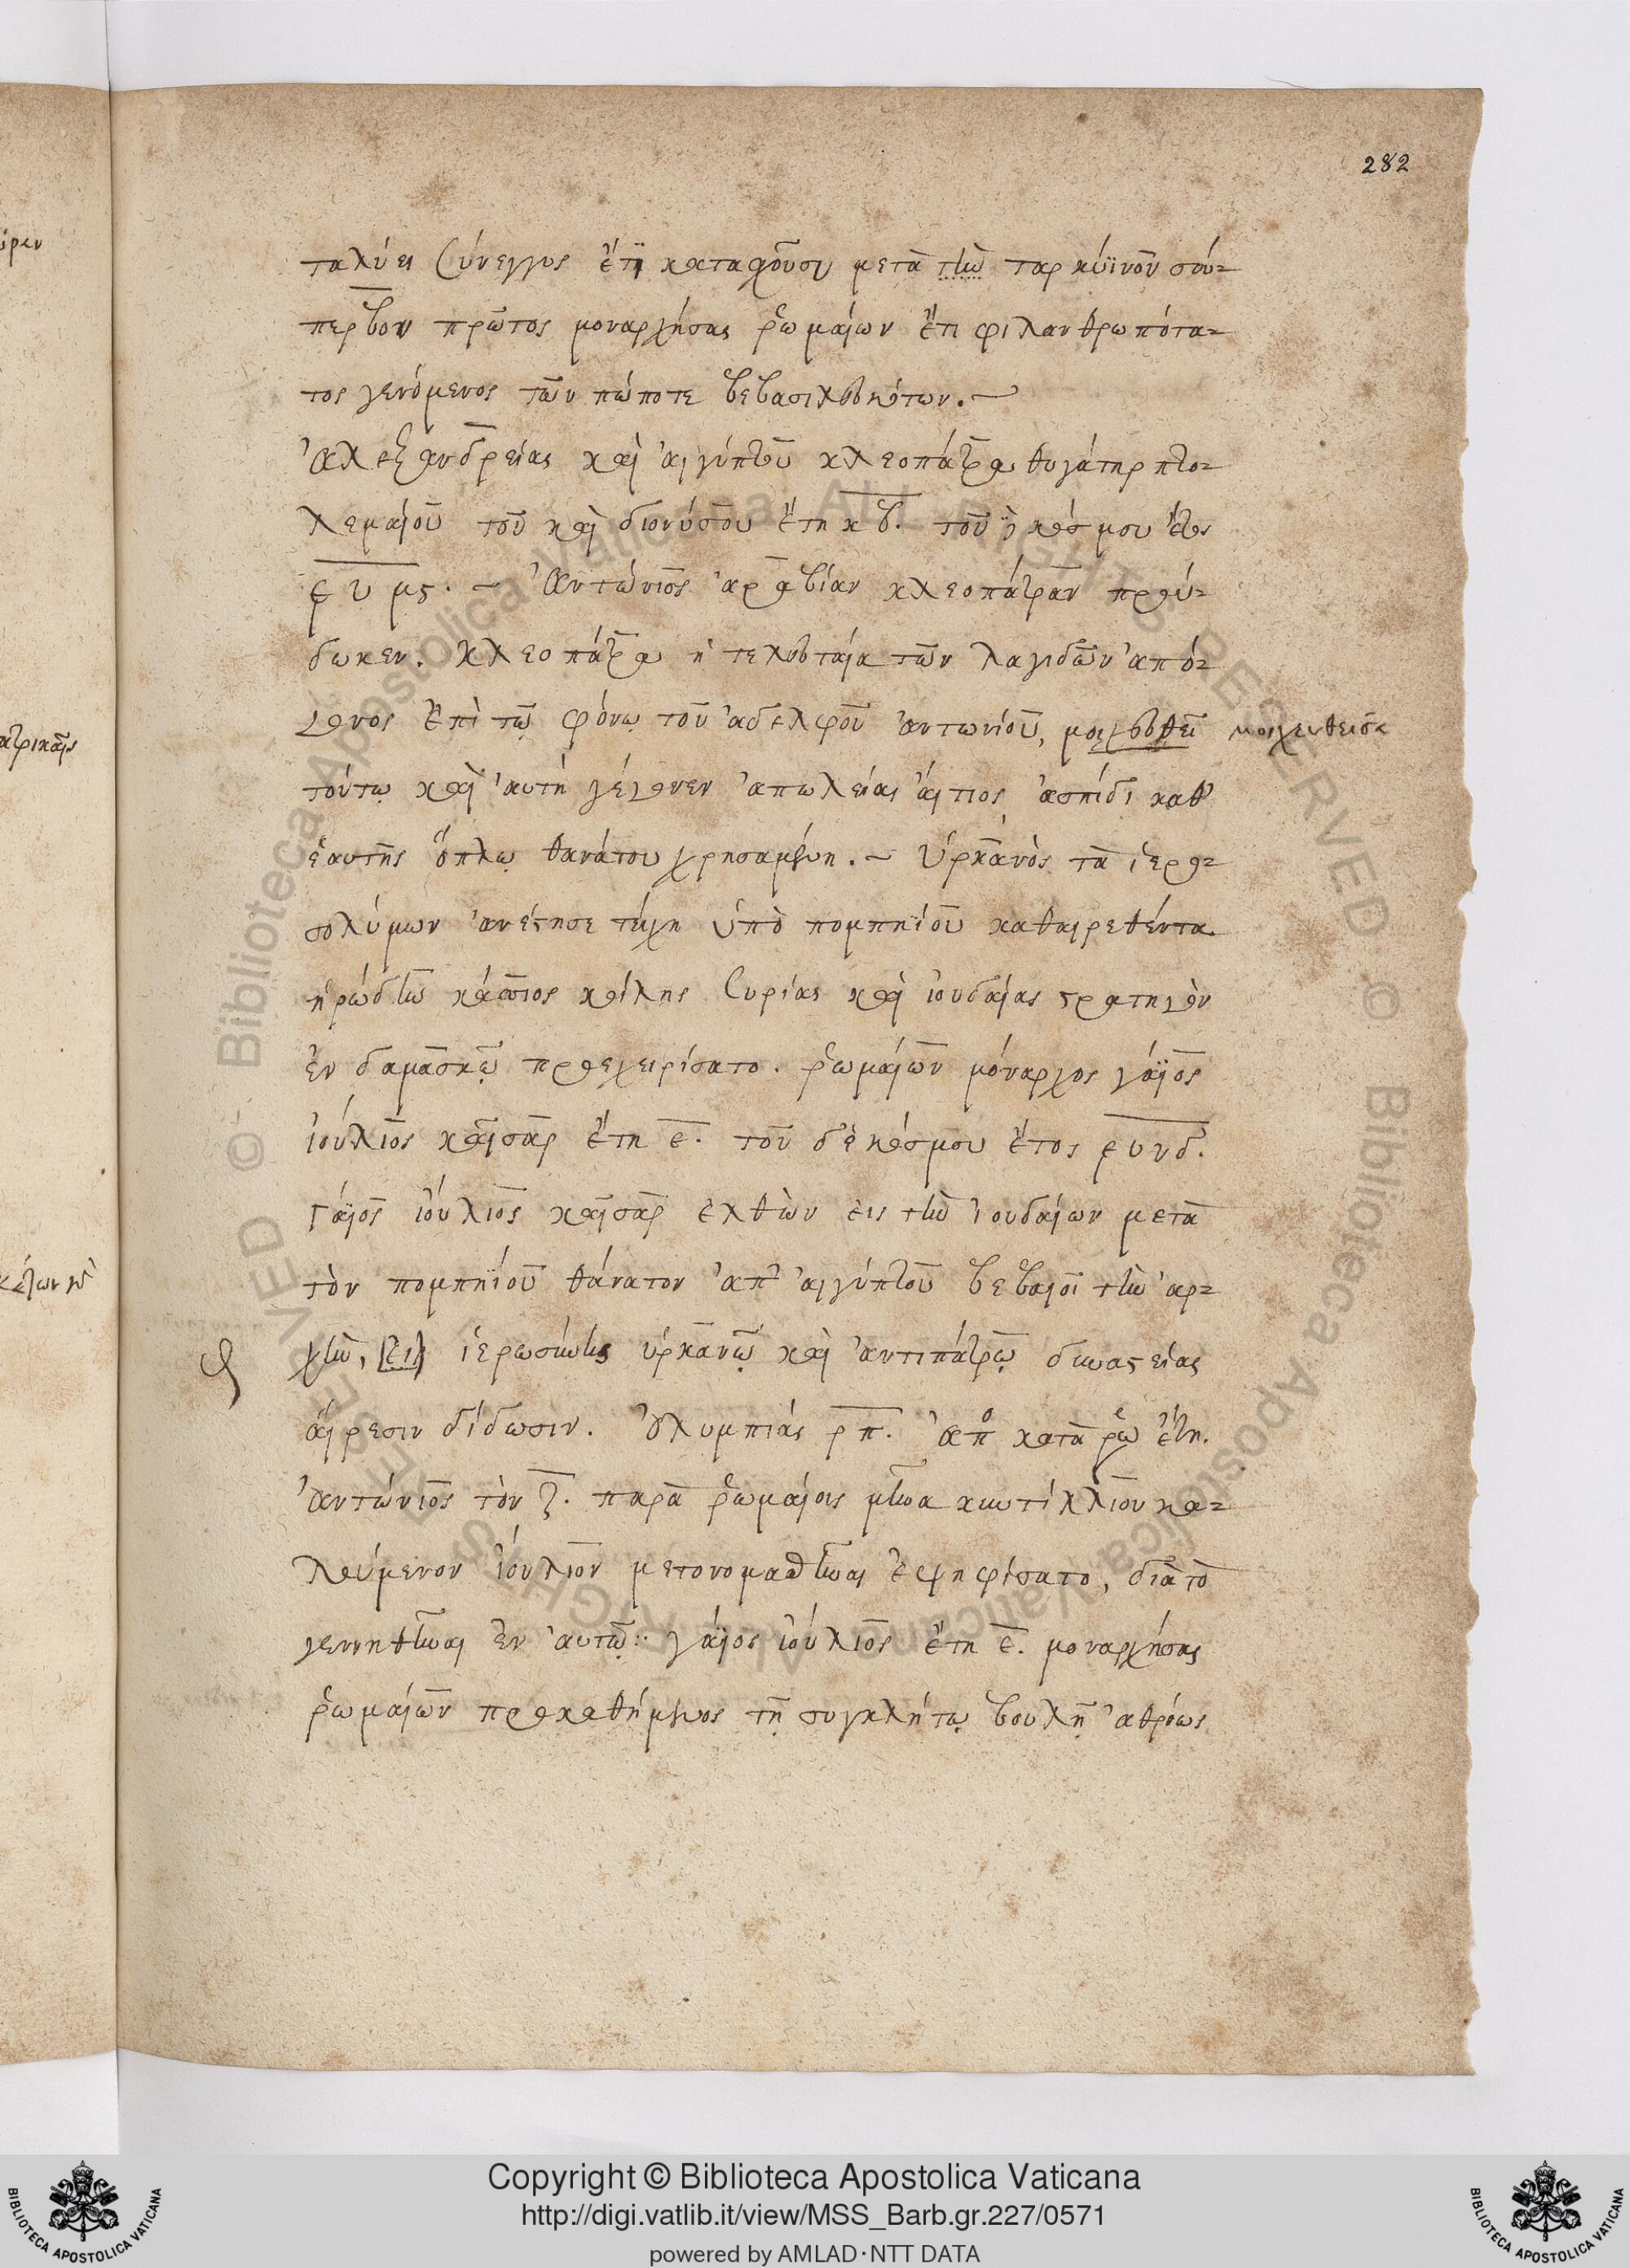 282
ταλύει σύνεγγυς ἔτη καταχοῦσι μετὰ τὴν ταρκύϊνον σού-
περβον πρῶτος μοναρχήσας ῥωμαίων ἔτι φιλανθρωπότα-
τος γενόμενος τῶν πώποτε βεβασιλευκότων.
Ἀλεξανδρείας καὶ αἰγύπτου κλεοπάτρα θυγάτηρ πτο-
λεμαίου τοῦ καὶ διονύσου ἔτη κβ. τοῦ κόσμου ἔτος
ͅευμς. Ἀντώνιος ἀραβίαν κλεοπάτραν πρού-
δωκεν. κλεοπάτρα ἡ τελευταία τῶν λαγιδῶν ἀπό-
γονος ἐπὶ τῷ φόνῳ τοῦ ἀδελφοῦ ἀντωνίου, μοιχευθεῖ μοιχευθεισα
τούτῳ καὶ αὐτὴ γέγονεν ἀπωλείας αἴτιος ἀσπίδι καθ
ἑαυτῆς ὅπλῳ θανάτου χρησαμένη. ὑρκανὸς τὰ ἱερο-
σολύμων ἀνέστησε τείχη ὑπὸ πομπηΐου καθαιρεθέντα.
ἡρώδην κάσσιος κοίλης συρίας καὶ ἰουδαίας στρατηγὸν
ἐν δαμασκῷ προεχειρίσατο. ῥωμαίων μόναρχος γάϊος
ἰούλιος καῖσαρ ἔτη ε. τοῦ δὲ κόσμου ἔτος ͅευνδ.
Γάϊος ἰούλιος καῖσαρ ἐλθὼν εἰς τὴν ἰουδαίων μετὰ
τὸν πομπηΐου θάνατον ἀπ' αἰγύπτου βεβαιοῖ τὴν ἀρ-
χὴν, ἱερωσύνης ὑρκανῷ καὶ ἀντιπάτρῳ δυναστείας
αἵρεσιν δίδωσιν. Ὀλυμπιάς ρπ. ἀπὸ κατὰ ῥω ἔτη.
Ἀντώνιος τὸν ζ. παρὰ ῥωμαίοις μῆνα κυντίλλιον κα-
λούμενον ἰούλιον μετονομασθῆναι ἐψηφίσατο, διὰ τὸ
γεννηθῆναι ἐν αὐτῷ: γάϊος ἰούλιος ἔτη ε. μοναρχήσας
ῥωμαίων προκαθήμενος τῇ συγκλήτῳ βουλῇ ἀθρόως
Copyright © Biblioteca Apostolica Vaticana
http://digi.vatlib.it/view/MSS_Barb.gr.227/0571
powered by AMLAD·NTT DATA
BIBLIOTECA APOSTOLICA VATICANA
BIBLIOTECA APOSTOLICA VATICANA